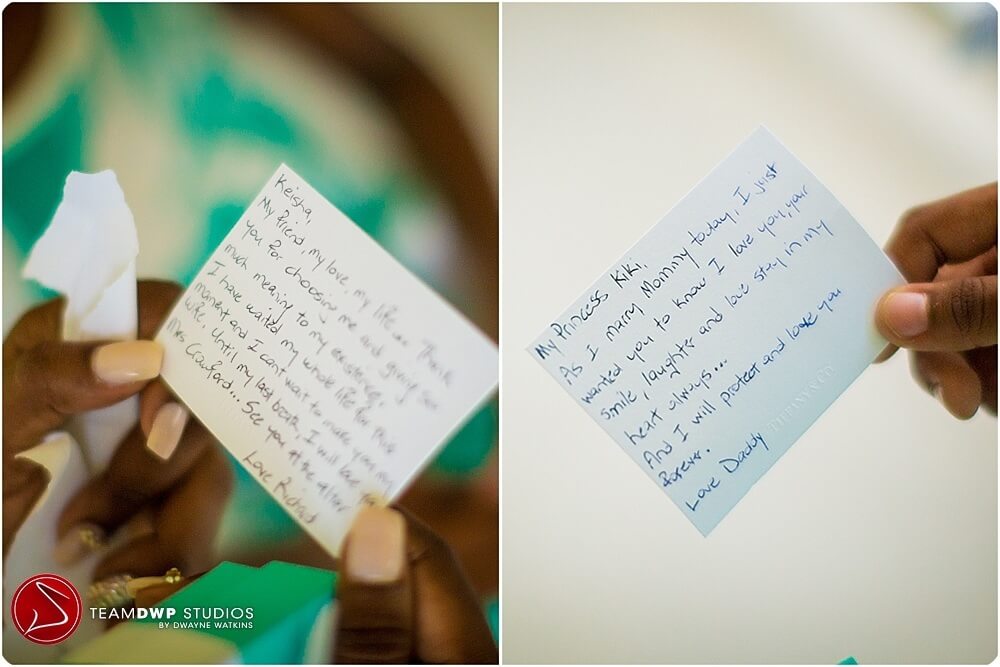 Keisha,
My friend, my love, my life... Thank
you for choosing me and giving so
much meaning to my existence.
I have waited my whole life for this
moment and I cant wait to make you my
wife. Until my last breath, I will love you
Mrs Crawford... See you at the altar
Love Richard
My Princess Kiki,
As I marry Mommy today, I just
wanted you to know I love you, your
smile, laughter and love stay in my
heart always...
And I will protect and love you
forever.
Love Daddy
TIFFANY & CO.
TEAMDWP STUDIOS
BY DWAYNE WATKINS